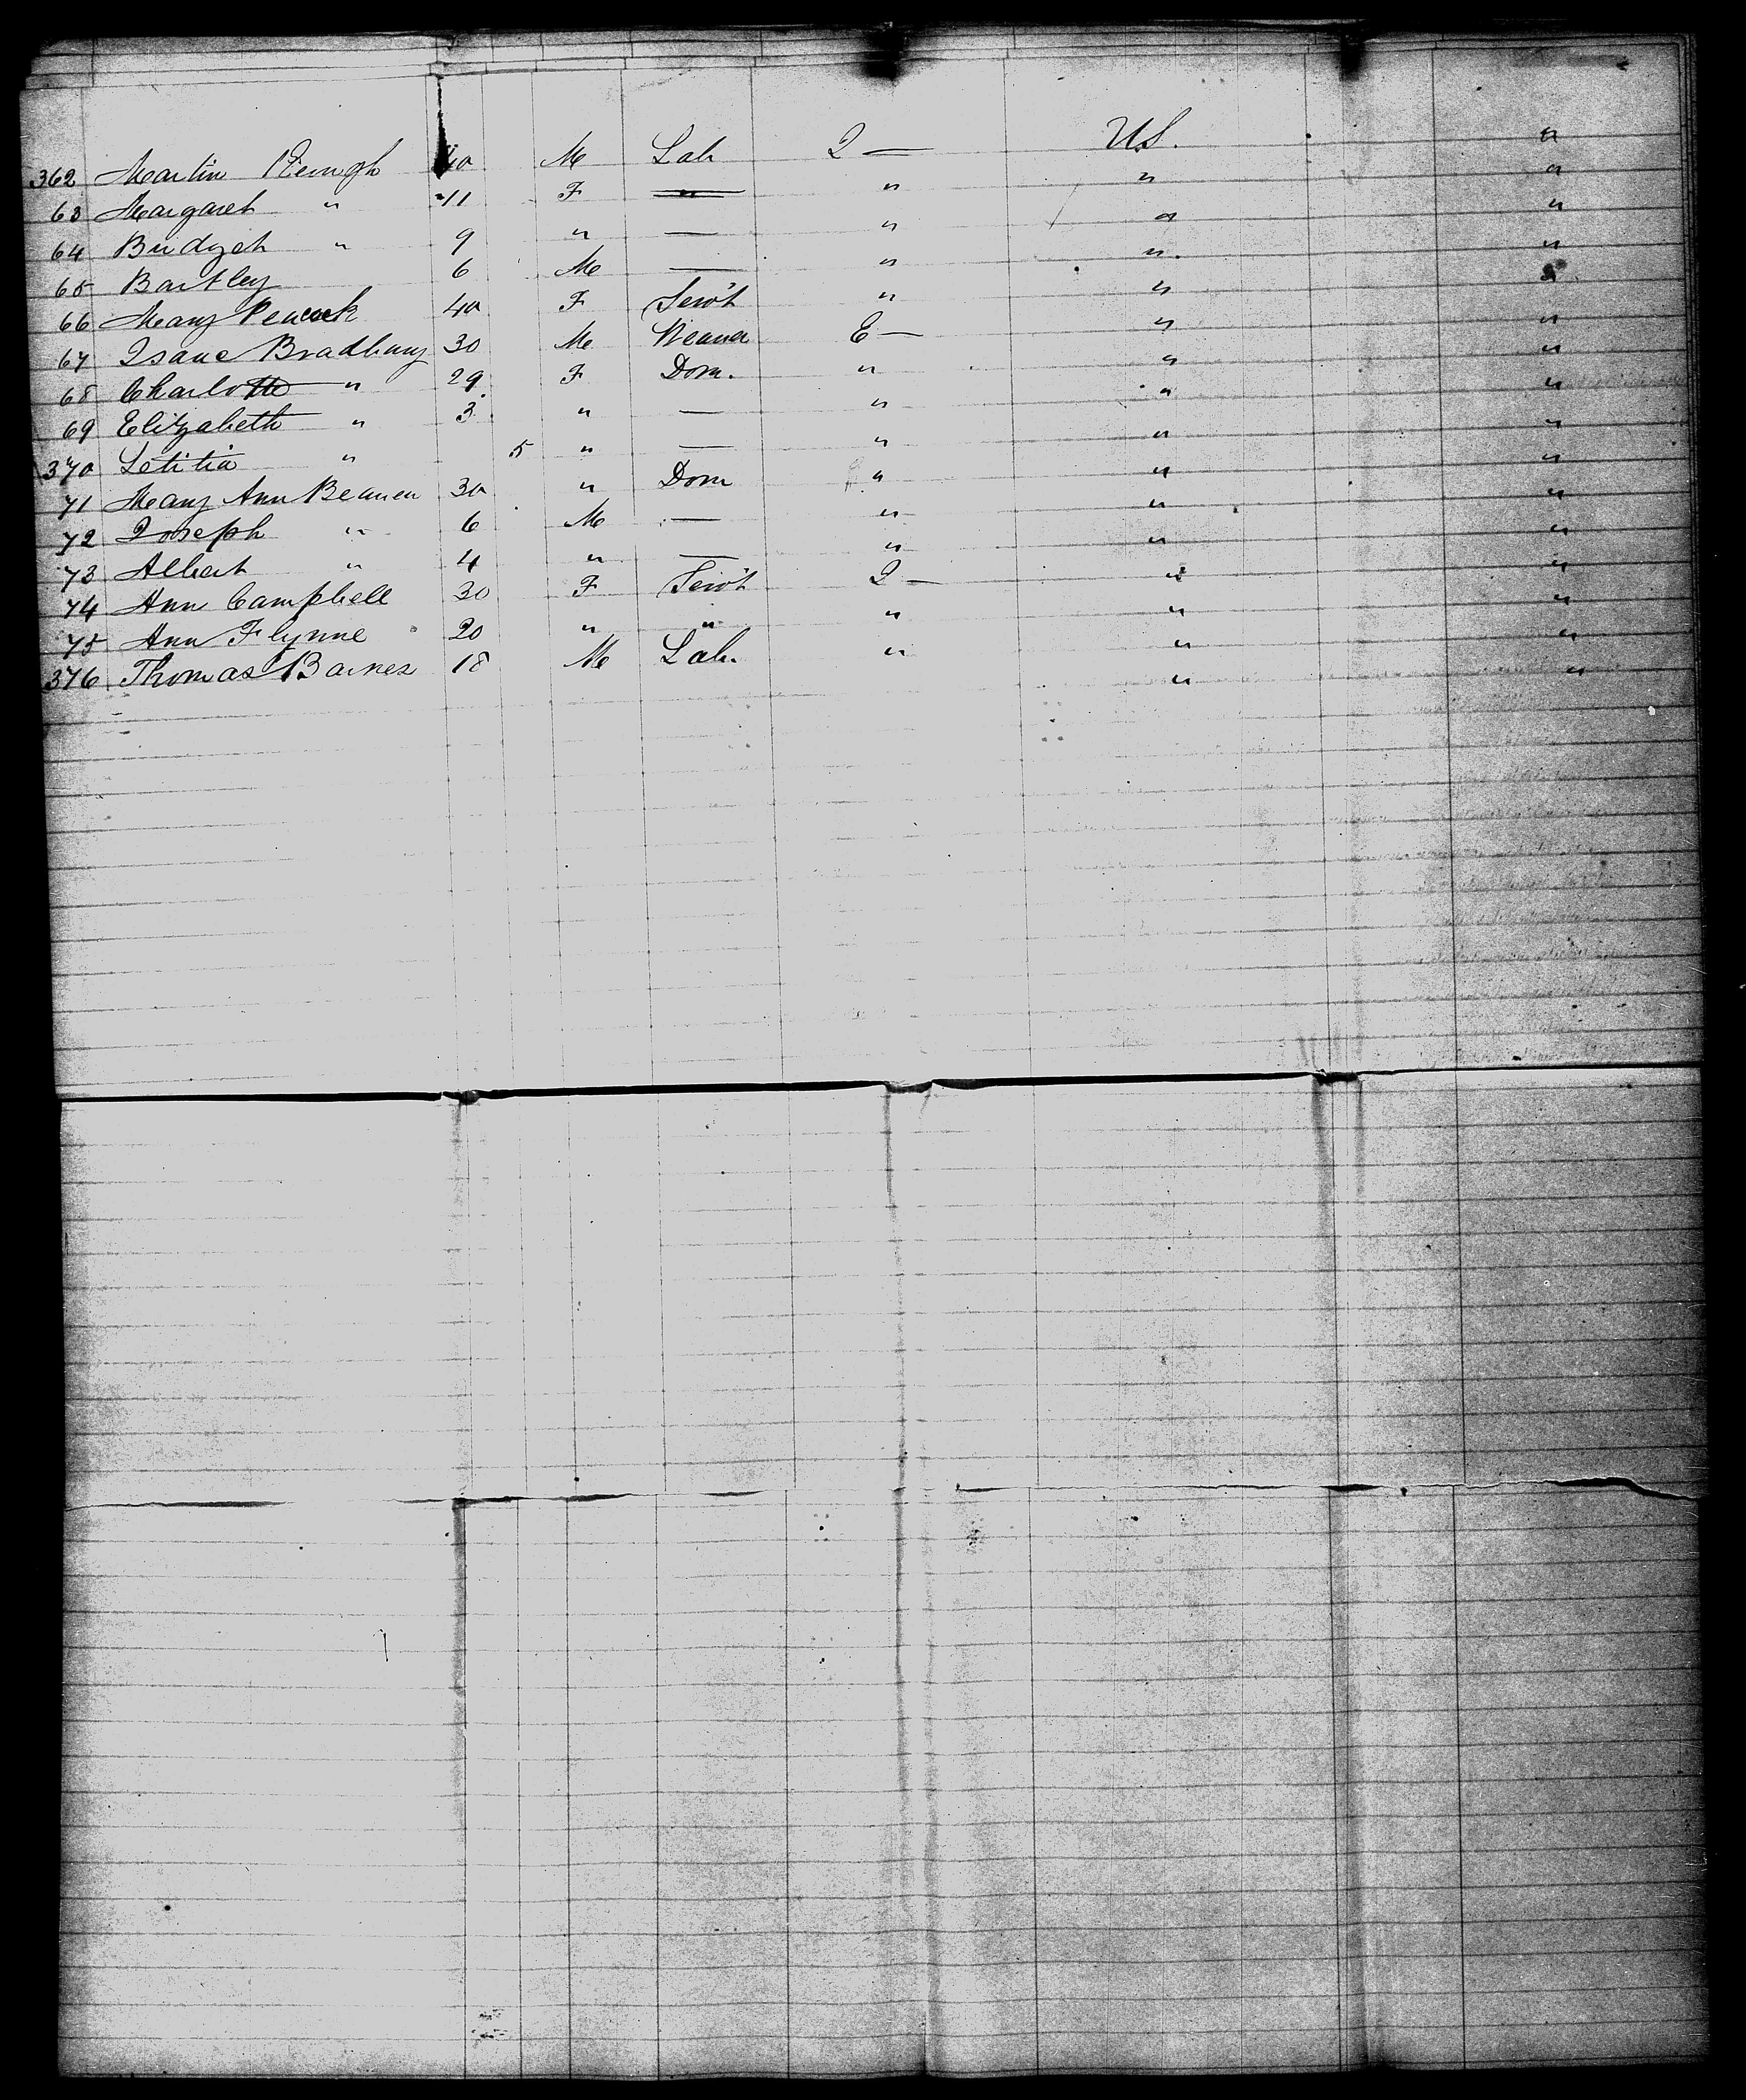 362 Martin 40 M Lab I — U.S. "
63 Margaret " 11 F " " " "
64 Bridget " 9 " — " " "
65 Bartley 6 M — " " "
66 Mary Peacock 40 F Serv't " " "
67 Isaac Bradbury 30 M Weaver E — " "
68 Charlotte " 29 F Dom. " " "
69 Elizabeth " 3 " — " " "
370 Letitia " 5 " — " " "
71 Mary Ann 30 " Dom " " "
72 Joseph " 6 M — " " "
73 Albert " 4 " — " " "
74 Ann Campbell 30 F Serv't I — " "
75 Ann Flynne 20 " " " " "
376 Thomas Barnes 18 M Lab. " " "